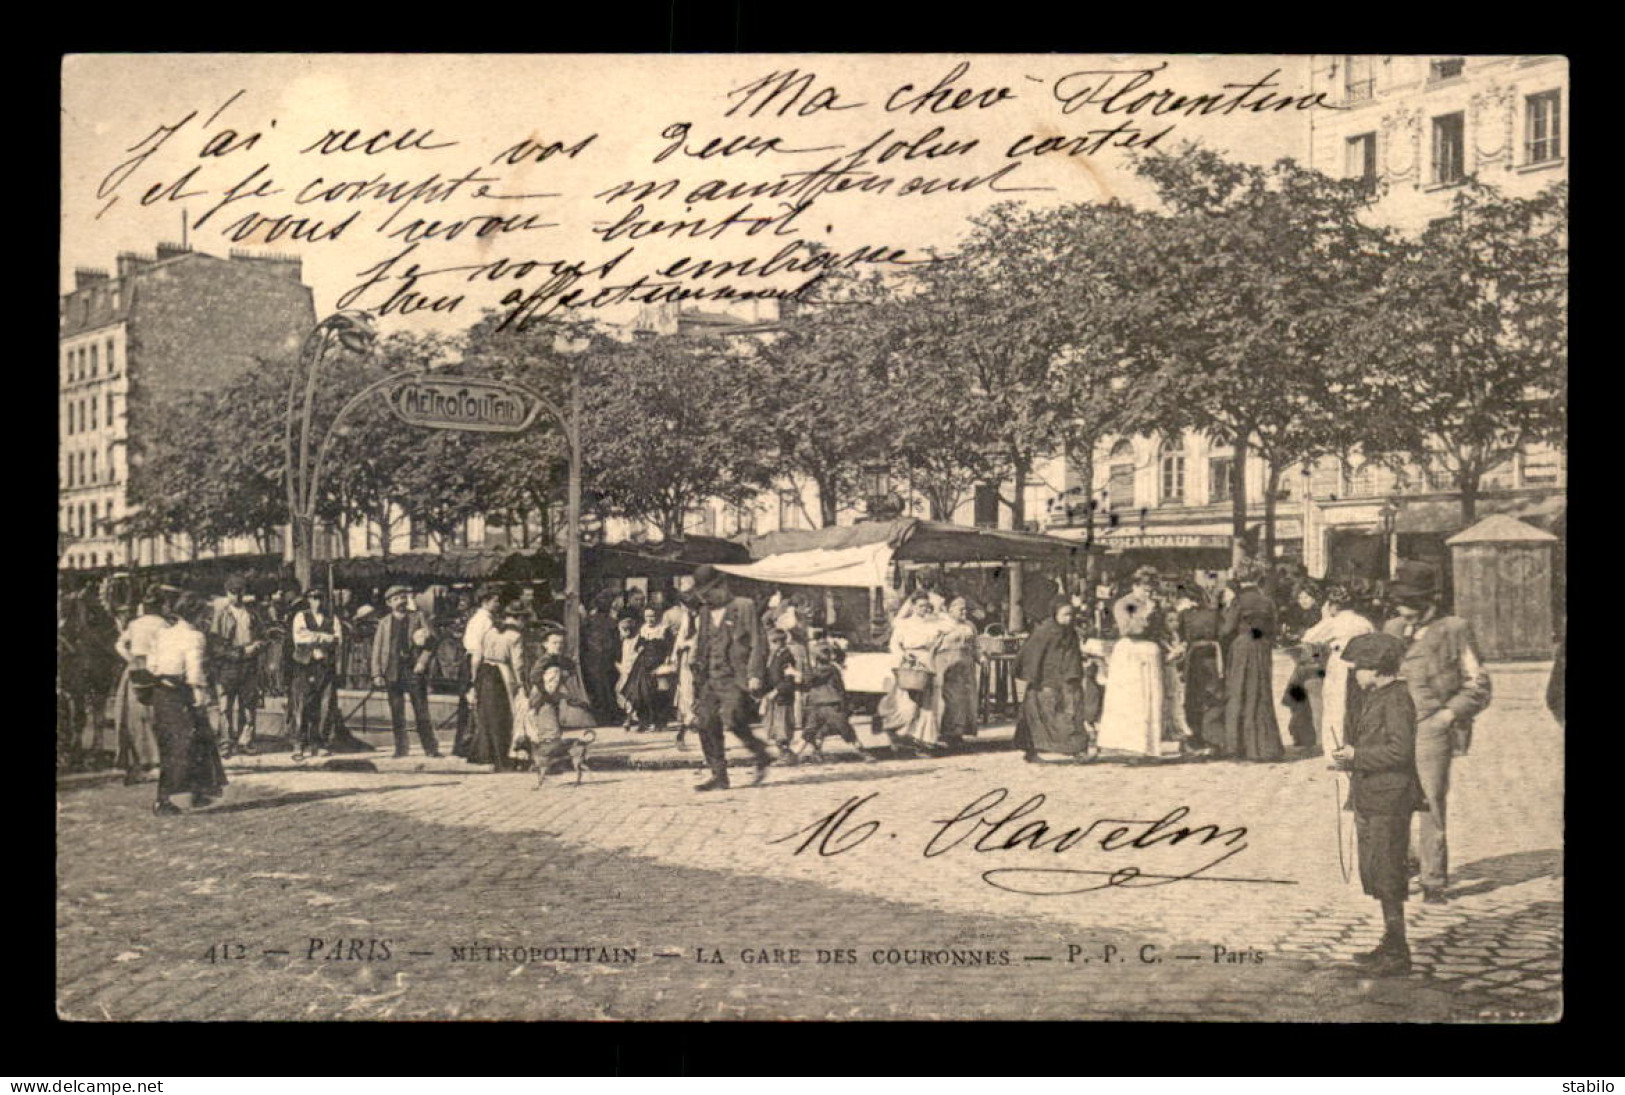 Ma chère Florentine
J'ai recu vos deux jolies cartes
, et je compte maintenant
vous revoir bientôt.
Je vous embrasse
bien affectueusement
METROPOLITAIN
PHARNAUM
M. Clavelin
412 — PARIS — MÉTROPOLITAIN — LA GARE DES COURONNES — P. P. C. — Paris
www.delcampe.net
stabilo